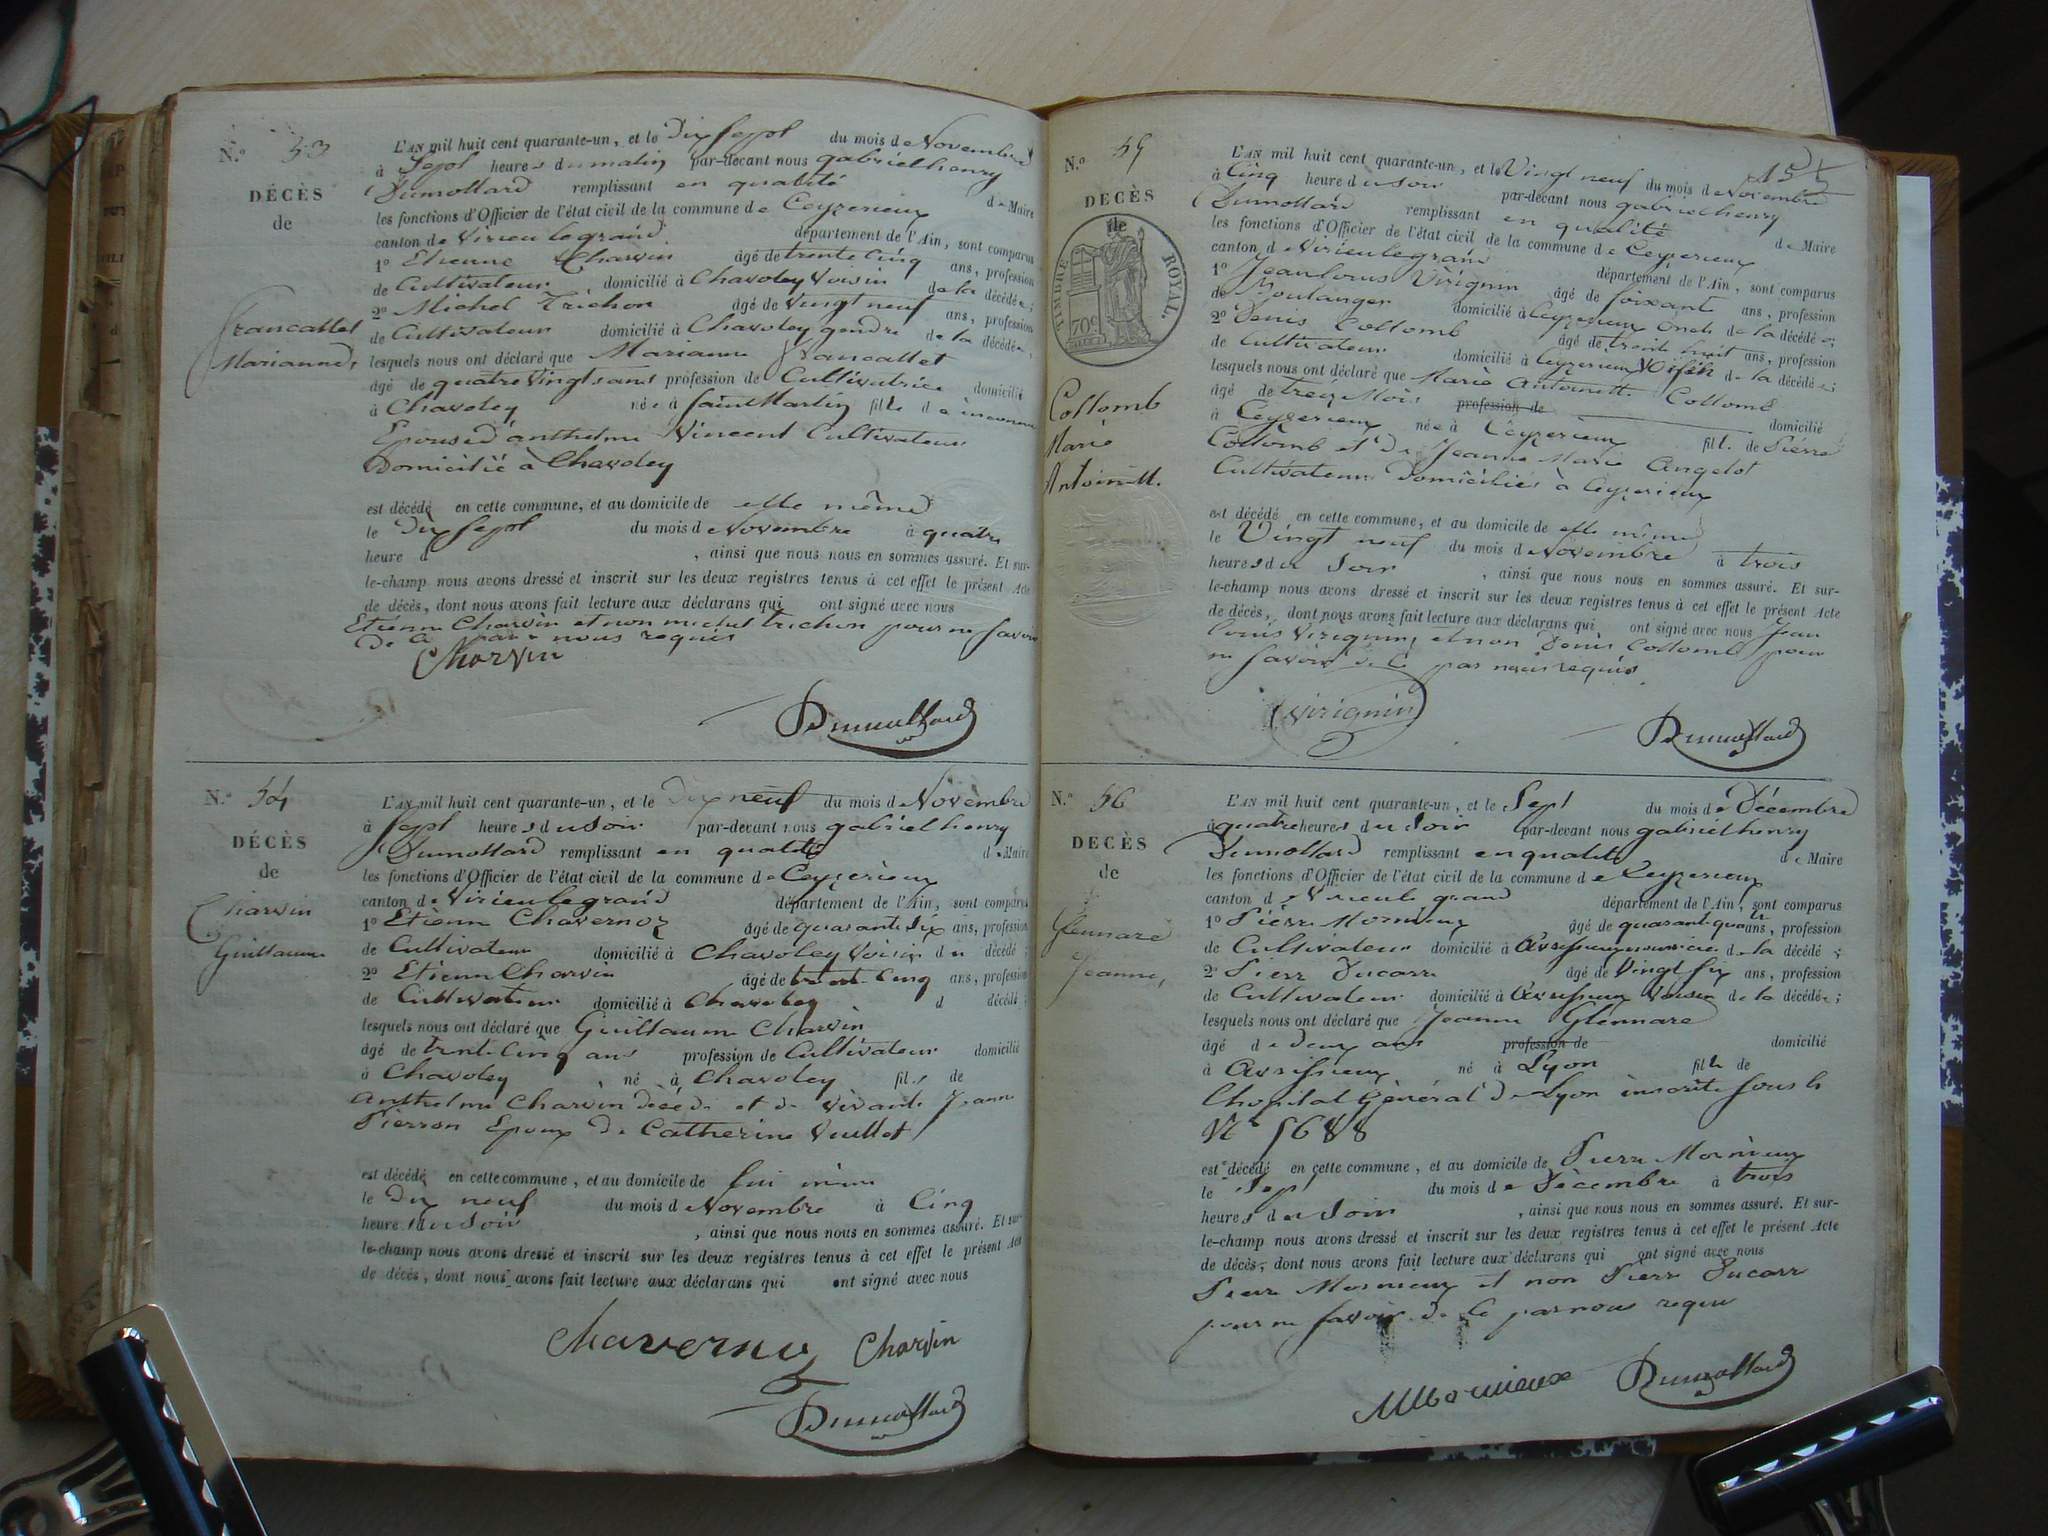 N.º 53
DÉCÈS
de
Francallet
Marianne
L'AN mil huit cent quarante-un, et le Dix sept du mois de Novembre
à Sept heures du matin par-devant nous gabriel henry
Dumollard remplissant en qualité de Maire
les fonctions d'Officier de l'état civil de la commune de Ceyzerieux
canton de Virieu le grand département de l'Ain, sont comparus
1º Etienne Charvin âgé de trente Cinq ans, profession
de Cultivateur domicilié à Chavoley Voisin de la décédée;
2º Michel Trichon âgé de Vingt neuf ans, profession
de Cultivateur domicilié à Chavoley gendre de la décédée,
lesquels nous ont déclaré que Marianne Francallet
âgé de quatre Vingts ans profession de Cultivatrice domicilié
à Chavoley née à Saint Martin fille d'inconnu
Epouse d'anthelme Vincent Cultivateur
Domicilié à Chavoley
est décédé en cette commune, et au domicile de elle même
le Dix Sept du mois de Novembre à quatre
heure d , ainsi que nous nous en sommes assuré. Et sur-
le-champ nous avons dressé et inscrit sur les deux registres tenus à cet effet le présent Acte
de décès, dont nous avons fait lecture aux déclarans qui ont signé avec nous
Etienne Charvin et non michel trichon pour ne savoir
De ce par nous requis
Charvin
Dumollard
N.º 54
DÉCÈS
de
Charvin
Guillaume
L'AN mil huit cent quarante-un, et le Dix neuf du mois de Novembre
à Sept heures du Soir par-devant nous gabriel henry
Dumollard remplissant en qualité de Maire
les fonctions d'Officier de l'état civil de la commune de Ceyzerieux
canton de Virieu le grand département de l'Ain, sont comparus
1º Etienne Chavernoz âgé de quarante Six ans, profession
de Cultivateur domicilié à Chavoley Voisin du décédé;
2º Etienne Charvin âgé de trente Cinq ans, profession
de Cultivateur domicilié à Chavoley d décédé;
lesquels nous ont déclaré que Guillaume Charvin
âgé de trente Cinq ans profession de Cultivateur domicilié
à Chavoley né à Chavoley fils de
Anthelme Charvin décédé et de vivante Jeanne
Pierron Epoux de Catherine Vuillet
est décédé en cette commune, et au domicile de lui même
le Dix neuf du mois de Novembre à Cinq
heures du Soir , ainsi que nous nous en sommes assuré. Et sur-
le-champ nous avons dressé et inscrit sur les deux registres tenus à cet effet le présent Acte
de décès, dont nous avons fait lecture aux déclarans qui ont signé avec nous
Chavernoz Charvin
Dumollard
155
N.º 55
DECÈS
de
TIMBRE ROYAL.
70c
Collomb
Marie
Antoinette
L'AN mil huit cent quarante-un, et le Vingt neuf du mois de Novembre
à Cinq heure du soir par-devant nous gabriel henry
Dumollard remplissant en qualité de Maire
les fonctions d'Officier de l'état civil de la commune de Ceyzerieux
canton de Virieu le grand département de l'Ain, sont comparus
1º Jean louis Virignin âgé de soixante ans, profession
de Boulanger domicilié à Ceyzerieux Oncle de la décédée;
2º Denis Collomb âgé de trente huit ans, profession
de Cultivateur domicilié à Ceyzerieux Voisin de la décédée;
lesquels nous ont déclaré que Marie Antoinette Collomb
âgé de treize Mois profession de domicilié
à Ceyzerieux née à Ceyzerieux fille de Pierre
Collomb et de Jeanne Marie Angelot
Cultivateurs Domiciliés à Ceyzerieux
est décédé en cette commune, et au domicile de elle même
le Vingt neuf du mois de Novembre à trois
heures du Soir , ainsi que nous nous en sommes assuré. Et sur-
le-champ nous avons dressé et inscrit sur les deux registres tenus à cet effet le présent Acte
de décès, dont nous avons fait lecture aux déclarans qui ont signé avec nous Jean
louis Virignin, et non Denis Collomb pour
ne Savoir de ce par nous requis
Virignin
Dumollard
N.º 56
DECÈS
de
Glennare
Jeanne,
L'AN mil huit cent quarante-un, et le Sept du mois de Décembre
à quatre heures du Soir par-devant nous gabriel henry
Dumollard remplissant en qualité de Maire
les fonctions d'Officier de l'état civil de la commune de Ceyzerieux
canton de Virieu le grand département de l'Ain, sont comparus
1º Pierre Mornieux âgé de quarante quatre ans, profession
de Cultivateur domicilié à Avrissieux nourricier de la décédé;
2º Pierre Ducarre âgé de Vingt six ans, profession
de Cultivateur domicilié à Avrissieux Voisin de la décédée;
lesquels nous ont déclaré que Jeanne Glennare
âgé de Deux ans profession de domicilié
à Avrissieux né à Lyon fille de
l'hopital Général de Lyon inscrite sous le
Nº 5688
est décédé en cette commune, et au domicile de Pierre Mornieux
le Sept du mois de Décembre à trois
heures du Soir , ainsi que nous nous en sommes assuré. Et sur-
le-champ nous avons dressé et inscrit sur les deux registres tenus à cet effet le présent Acte
de décès, dont nous avons fait lecture aux déclarans qui ont signé avec nous
Pierre Mornieux et non Pierre Ducarre
pour ne savoir de ce par nous requis
Mornieux Dumollard